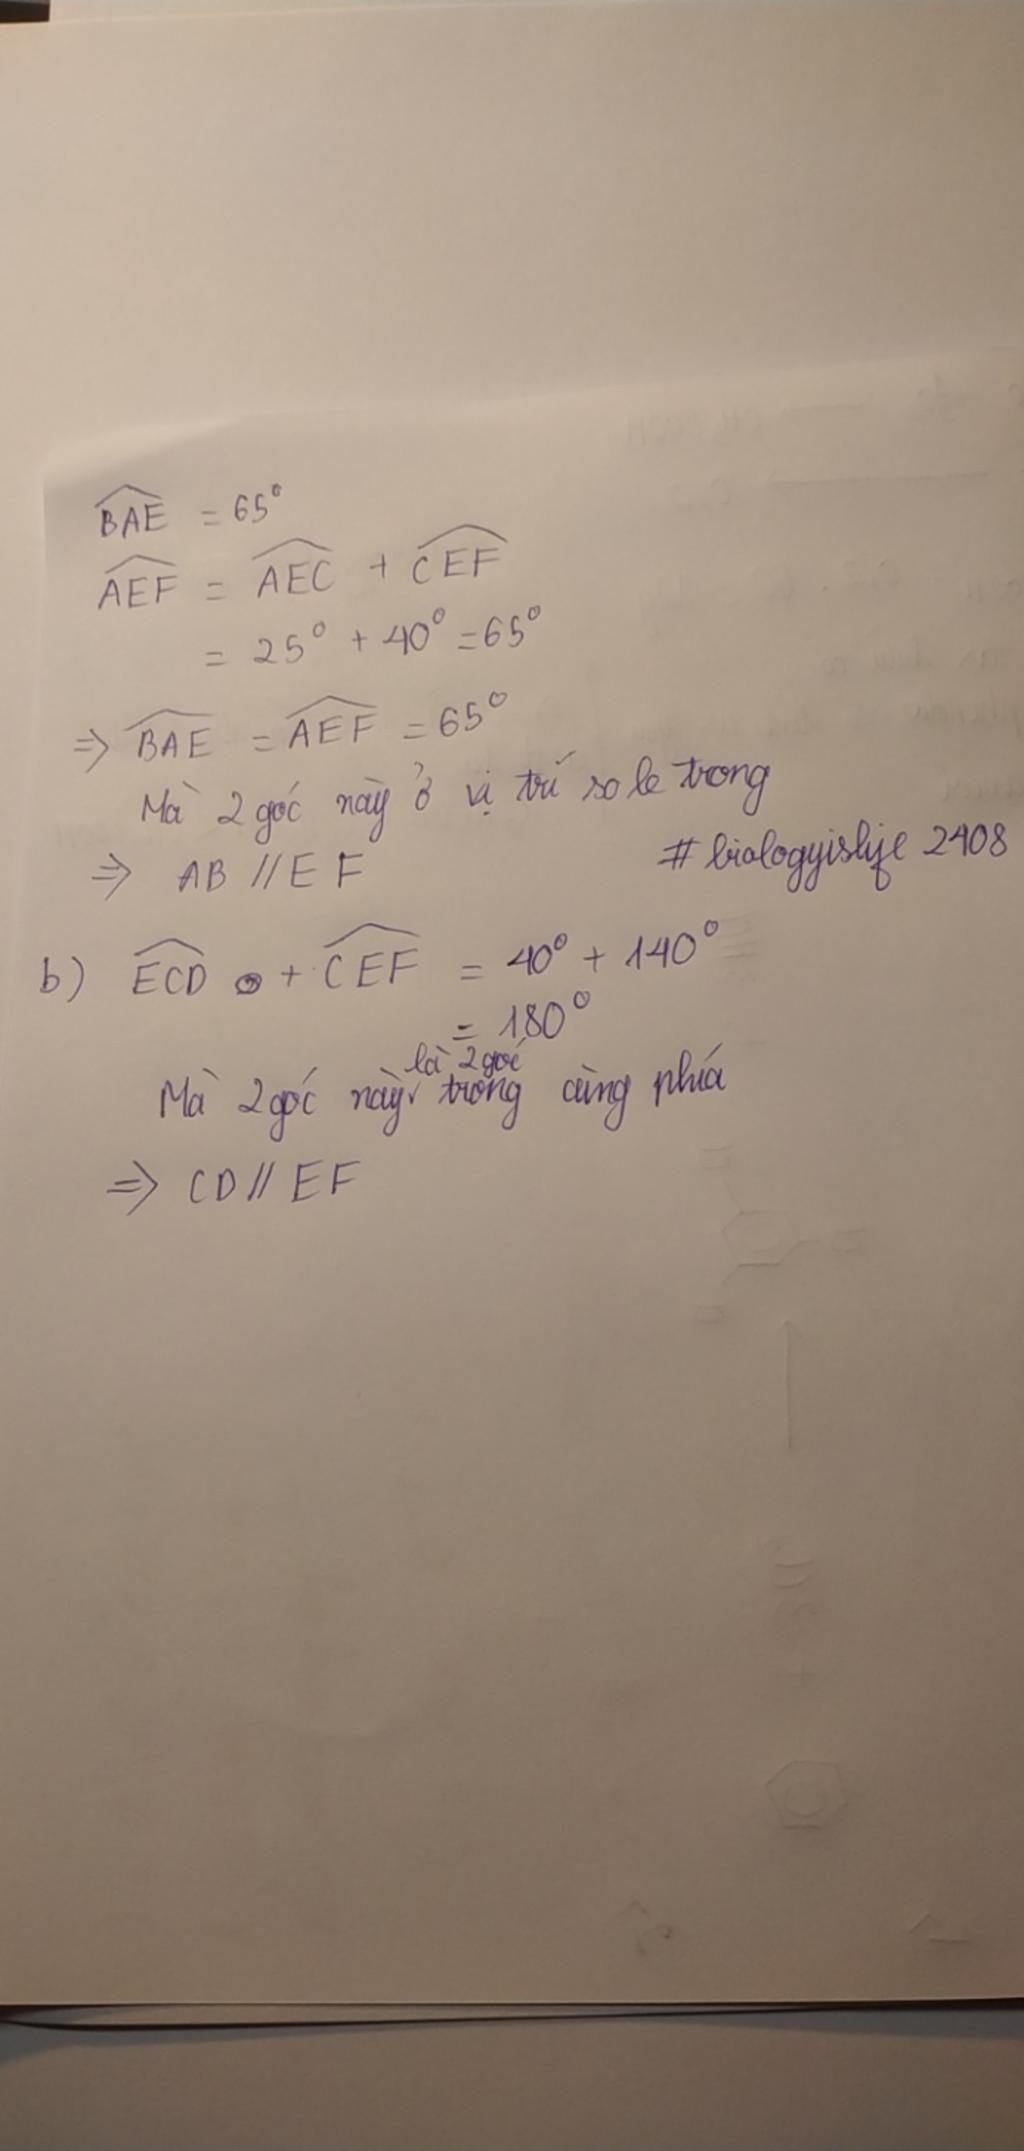 BAE = 65°
AEF = AEC + CEF
= 25° + 40° = 65°
⇒ BAE = AEF = 65°
Mà 2 góc này ở vị trí so le trong
⇒ AB // EF
#biologyislife 2408
b) ECD + CEF = 40° + 140°
= 180°
Mà 2 góc này là 2 góc trong cùng phía
⇒ CD // EF